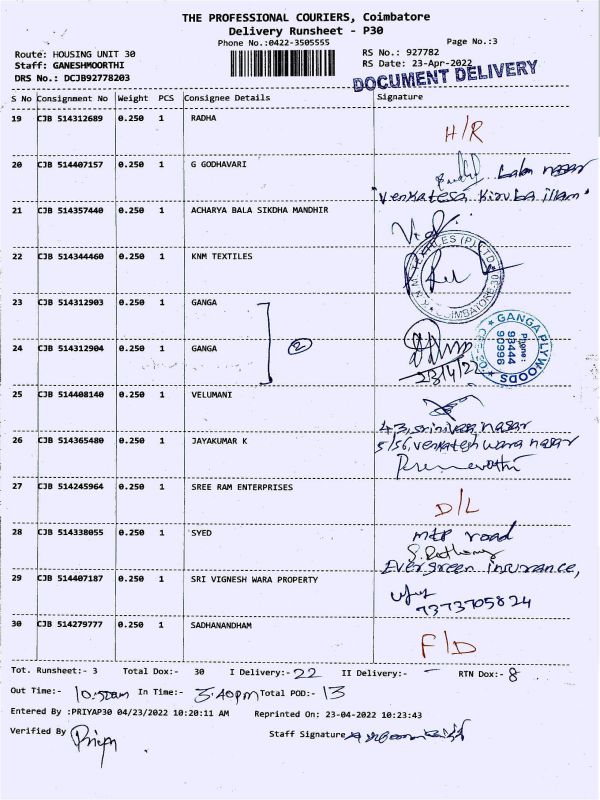 THE PROFESSIONAL COURIERS, Coimbatore
Delivery Runsheet - P30
Phone No.:0422-3505555
Page No.:3
Route: HOUSING UNIT 30
RS No.: 927782
Staff: GANESHMOORTHI
RS Date: 23-Apr-2022
DRS No.: DCJB92778203
DOCUMENT DELIVERY
S No Consignment No Weight PCS Consignee Details Signature
19 CJB 514312689 0.250 1 RADHA
H/R
20 CJB 514407157 0.250 1 G GODHAVARI
nagar
"Venkatesa Kiruba illam"
21 CJB 514357440 0.250 1 ACHARYA BALA SIKDHA MANDHIR
22 CJB 514344460 0.250 1 KNM TEXTILES
K.N.M. TEXTILES (P) LTD COIMBATORE-30
23 CJB 514312903 0.250 1 GANGA
24 CJB 514312904 0.250 1 GANGA
2
23/4/22
GANGA PLYWOODS
Phone:
93444
90996
25 CJB 514408140 0.250 1 VELUMANI
43, srinivasa nagar
26 CJB 514365480 0.250 1 JAYAKUMAR K
5/56, venkateshwara nagar
27 CJB 514245964 0.250 1 SREE RAM ENTERPRISES
D/L
28 CJB 514338055 0.250 1 SYED
mtp road
Evergreen insurance,
29 CJB 514407187 0.250 1 SRI VIGNESH WARA PROPERTY
7373705824
30 CJB 514279777 0.250 1 SADHANANDHAM
F/D
Tot. Runsheet:- 3 Total Dox:- 30 I Delivery:- 22 II Delivery:- - RTN Dox:- 8
Out Time:- 10.50am In Time:- 3.40pm Total POD:- 13
Entered By :PRIYAP30 04/23/2022 10:20:11 AM Reprinted On: 23-04-2022 10:23:43
Verified By Priya
Staff Signature